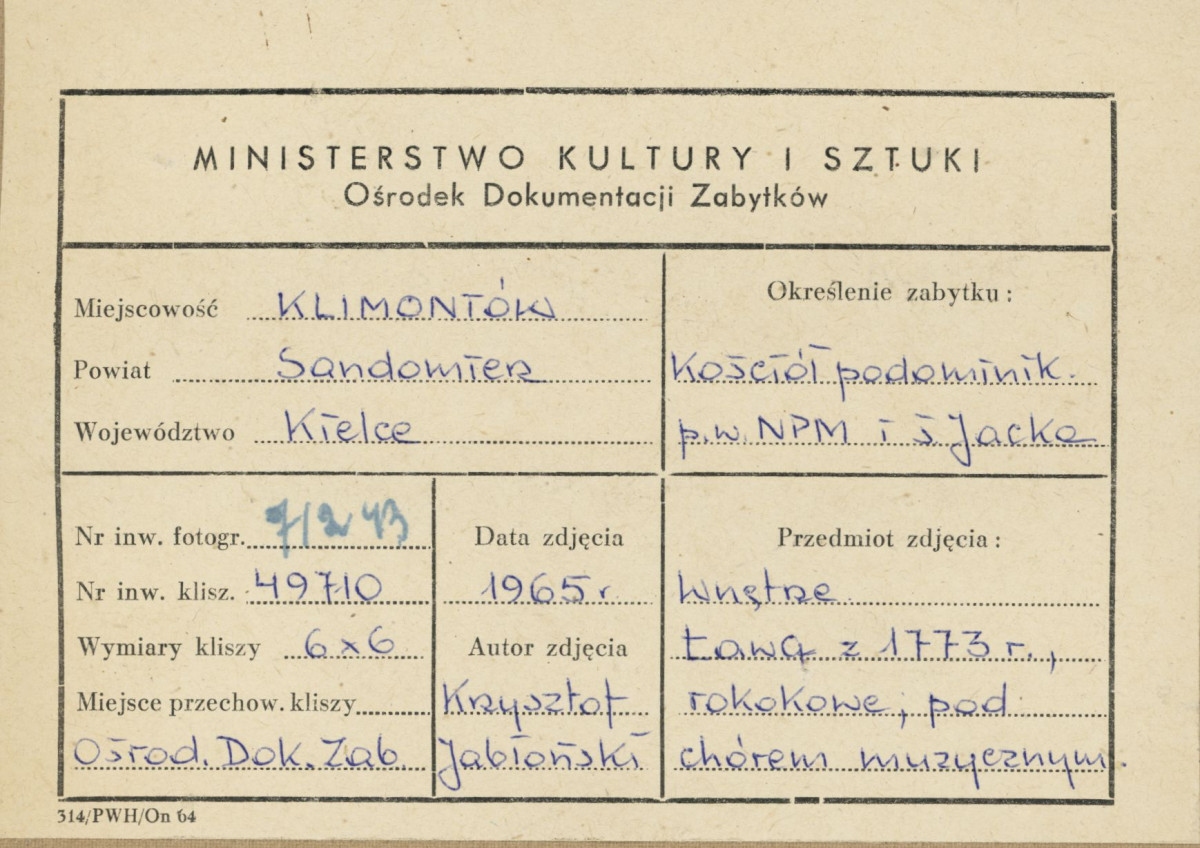 MINISTERSTWO KULTURY I SZTUKI
Ośrodek Dokumentacji Zabytków
Miejscowość KLIMONTÓW
Powiat Sandomierz
Województwo Kielce
Określenie zabytku:
Kościół podominik.
p.w. NPM i ś Jacka
Nr inw. fotogr. 71243
Nr inw. klisz. 49710
Wymiary kliszy 6x6
Miejsce przechow. kliszy
Ośrod. Dok. Zab.
Data zdjęcia
1965 r.
Autor zdjęcia
Krzysztof
Jabłoński
Przedmiot zdjęcia:
Wnętrze.
Ława z 1773 r.,
rokokowe, pod
chórem muzycznym.
314/PWH/On 64